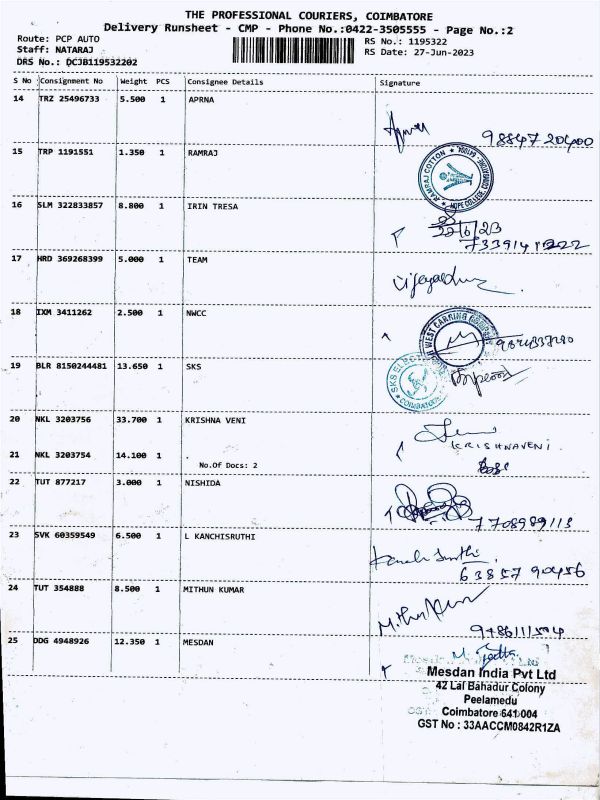 THE PROFESSIONAL COURIERS, COIMBATORE
Delivery Runsheet - CMP - Phone No.:0422-3505555 - Page No.:2
Route: PCP AUTO
RS No.: 1195322
Staff: NATARAJ
RS Date: 27-Jun-2023
DRS No.: DCJB119532202
S No Consignment No Weight PCS Consignee Details Signature
14 TRZ 25496733 5.500 1 APRNA
98847 20400
15 TRP 1191551 1.350 1 RAMRAJ
RAMRAJ COTTON
HOPE COLLEGE
16 SLM 322833857 8.800 1 IRIN TRESA
17 HRD 369268399 5.000 1 TEAM
18 IXM 3411262 2.500 1 NWCC
19 BLR 8150244481 13.650 1 SKS
COIMBATORE
20 NKL 3203756 33.700 1 KRISHNA VENI
KRISHNAVENI.
21 NKL 3203754 14.100 1 .
No.Of Docs: 2
22 TUT 877217 3.000 1 NISHIDA
7708989113
23 SVK 60359549 6.500 1 L KANCHISRUTHI
63857 90456
24 TUT 354888 8.500 1 MITHUN KUMAR
25 DDG 4948926 12.350 1 MESDAN
Mesdan India Pvt Ltd
42 Lal Bahadur Colony
Peelamedu
Coimbatore 641 004
GST No : 33AACCM0842R1ZA